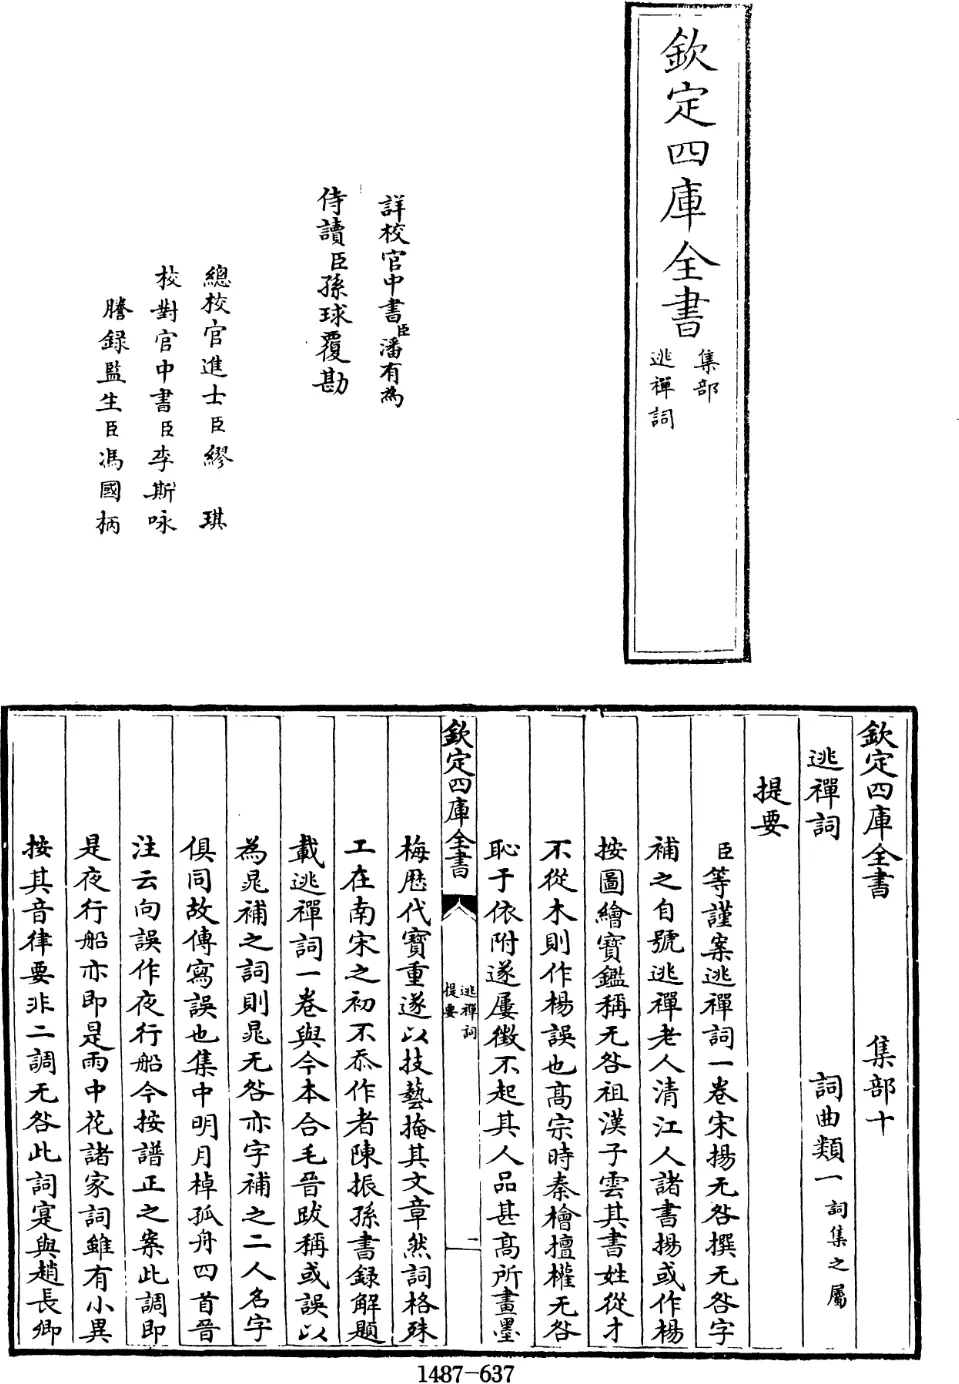 欽定四庫全書
集部
逃禪詞
詳校官中書臣潘有為
侍讀臣孫球覆勘
總校官進士臣繆琪
校對官中書臣李斯咏
謄錄監生臣馮國柄
欽定四庫全書 集部十
逃禪詞 詞曲類一 詞集之屬
提要
臣等謹案逃禪詞一卷宋揚无咎撰无咎字
補之自號逃禪老人清江人諸書揚或作楊
按圖繪寶鑑稱无咎祖漢子雲其書姓從才
不從木則作楊誤也高宗時秦檜擅權无咎
恥于依附遂屢徵不起其人品甚高所畫墨
欽定四庫全書
逃禪詞
提要
一
梅歷代寶重遂以技藝掩其文章然詞格殊
工在南宋之初不忝作者陳振孫書錄解題
載逃禪詞一卷與今本合毛晉跋稱或誤以
為晁補之詞則晁无咎亦字補之二人名字
俱同故傳寫誤也集中明月棹孤舟四首晉
注云向誤作夜行船今按譜正之案此調即
是夜行船亦即是雨中花諸家詞雖有小異
按其音律要非二調无咎此詞寔與趙長卿
1487-637